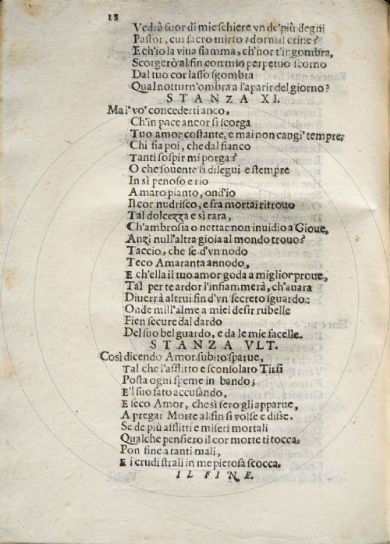 18
Vedrò fuor di mie schiere vn de'più degni
Pastor, cui sacro mirto adorni il crine?
E ch'io la viua fiamma, ch'hor t'ingombra,
Scorgerò al fin con mio perpetuo scorno
Dal tuo cor lasso sgombra
Qual notturn'ombra a l'aparir del giorno?
STANZA XI.
Ma i' vo' concederti anco,
Ch'in pace ancor si scorga
Tuo amor costante, e mai non cangi tempre;
Chi fia poi, che dal fianco
Tanti sospir mi porga?
O che souente si dilegui e stempre
In sì penoso e rio
Amaro pianto, ond'io
Il cor nudrisco, e fra mortai ritrouo
Tal dolcezza e sì rara,
Ch'ambrosia o nettar non inuidio a Gioue,
Anzi null'altra gioia al mondo trouo?
Taccio, che se d'vn nodo
Teco Amaranta annodo,
E ch'ella il tuo amor goda a miglior proue,
Tal per te ardor l'infiammerà, ch'auara
Diuerrà altrui fin d'vn secreto sguardo:
Onde mill'alme a miei desir rubelle
Fien secure dal dardo
Del suo bel guardo, e da le mie facelle.
STANZA VLT.
Così dicendo Amor subito sparue,
Tal che l'afflitto e sconsolato Tirsi
Posta ogni speme in bando;
E'l suo fato accusando,
E seco Amor, che sì fero gli apparue,
A pregar Morte al fin si volse e disse.
Se de più afflitti e miseri mortali
Qualche pensiero il cor morte ti tocca,
Pon fine a tanti mali,
E i crudi strali in me pietosa scocca.
IL FINE.